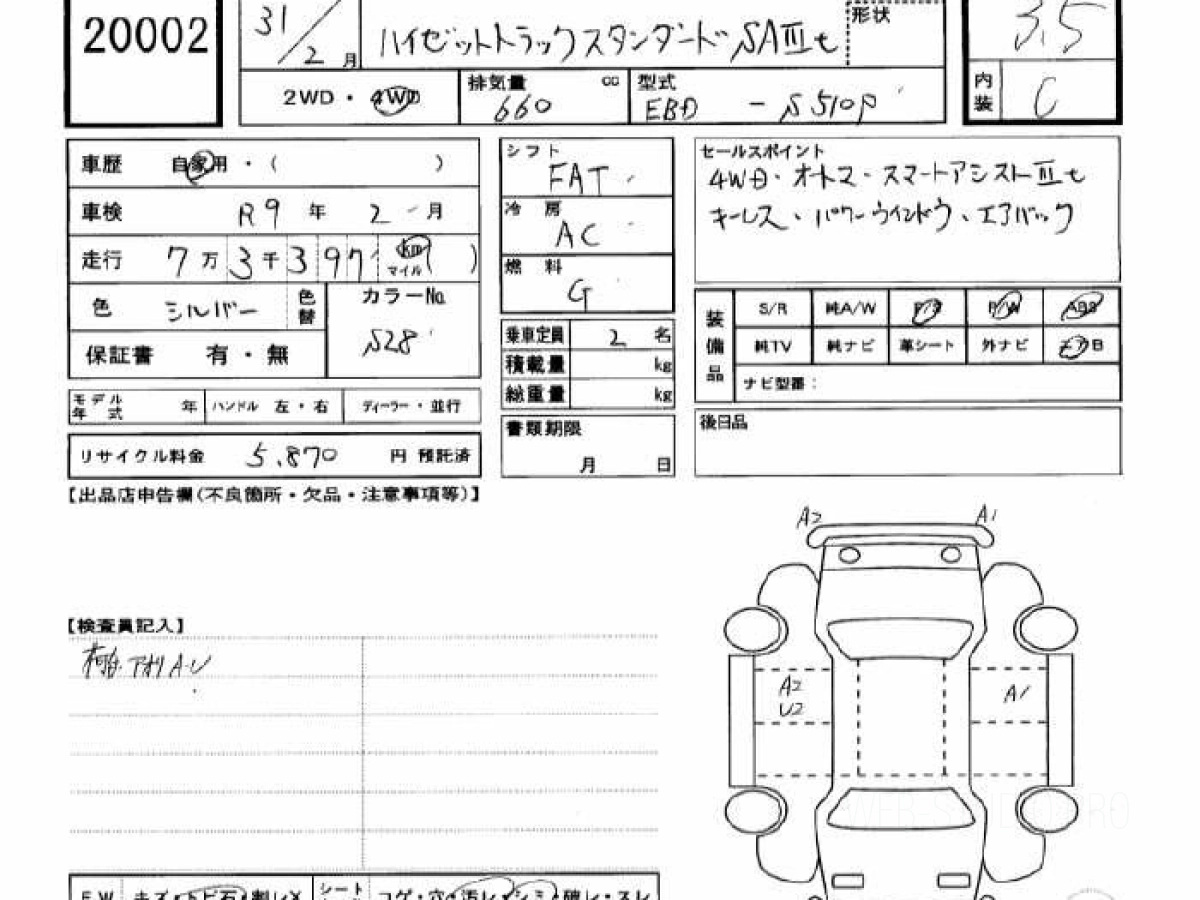 20002
31/2月
ハイゼットトラックスタンダードSAⅢt
形状
3.5
2WD・4WD
排気量 cc
660
型式
EBD - S510P
内装 C
車歴 自家用・( )
車検 R9年 2月
走行 7万3千397 km マイル ( )
色 シルバー 色替
カラーNo.
S28
保証書 有・無
モデル年式 年 ハンドル 左・右 ディーラー・並行
リサイクル料金 5.870 円 預託済
シフト
FAT
冷房
AC
燃料
G
乗車定員 2 名
積載量 kg
総重量 kg
書類期限
月 日
セールスポイント
4WD・オートマ・スマートアシストⅢt
キーレス・パワーウインドウ・エアバック
装備品
S/R 純A/W P/S P/W ABS
純TV 純ナビ 革シート 外ナビ エアB
ナビ型番:
後日品
【出品店申告欄(不良箇所・欠品・注意事項等)】
【検査員記入】
アオリA・U
A2 A1
A2
U2
A1
F W キズ・トビ石・割レX
シート コゲ・穴・汚レ・シミ・破レ・スレ